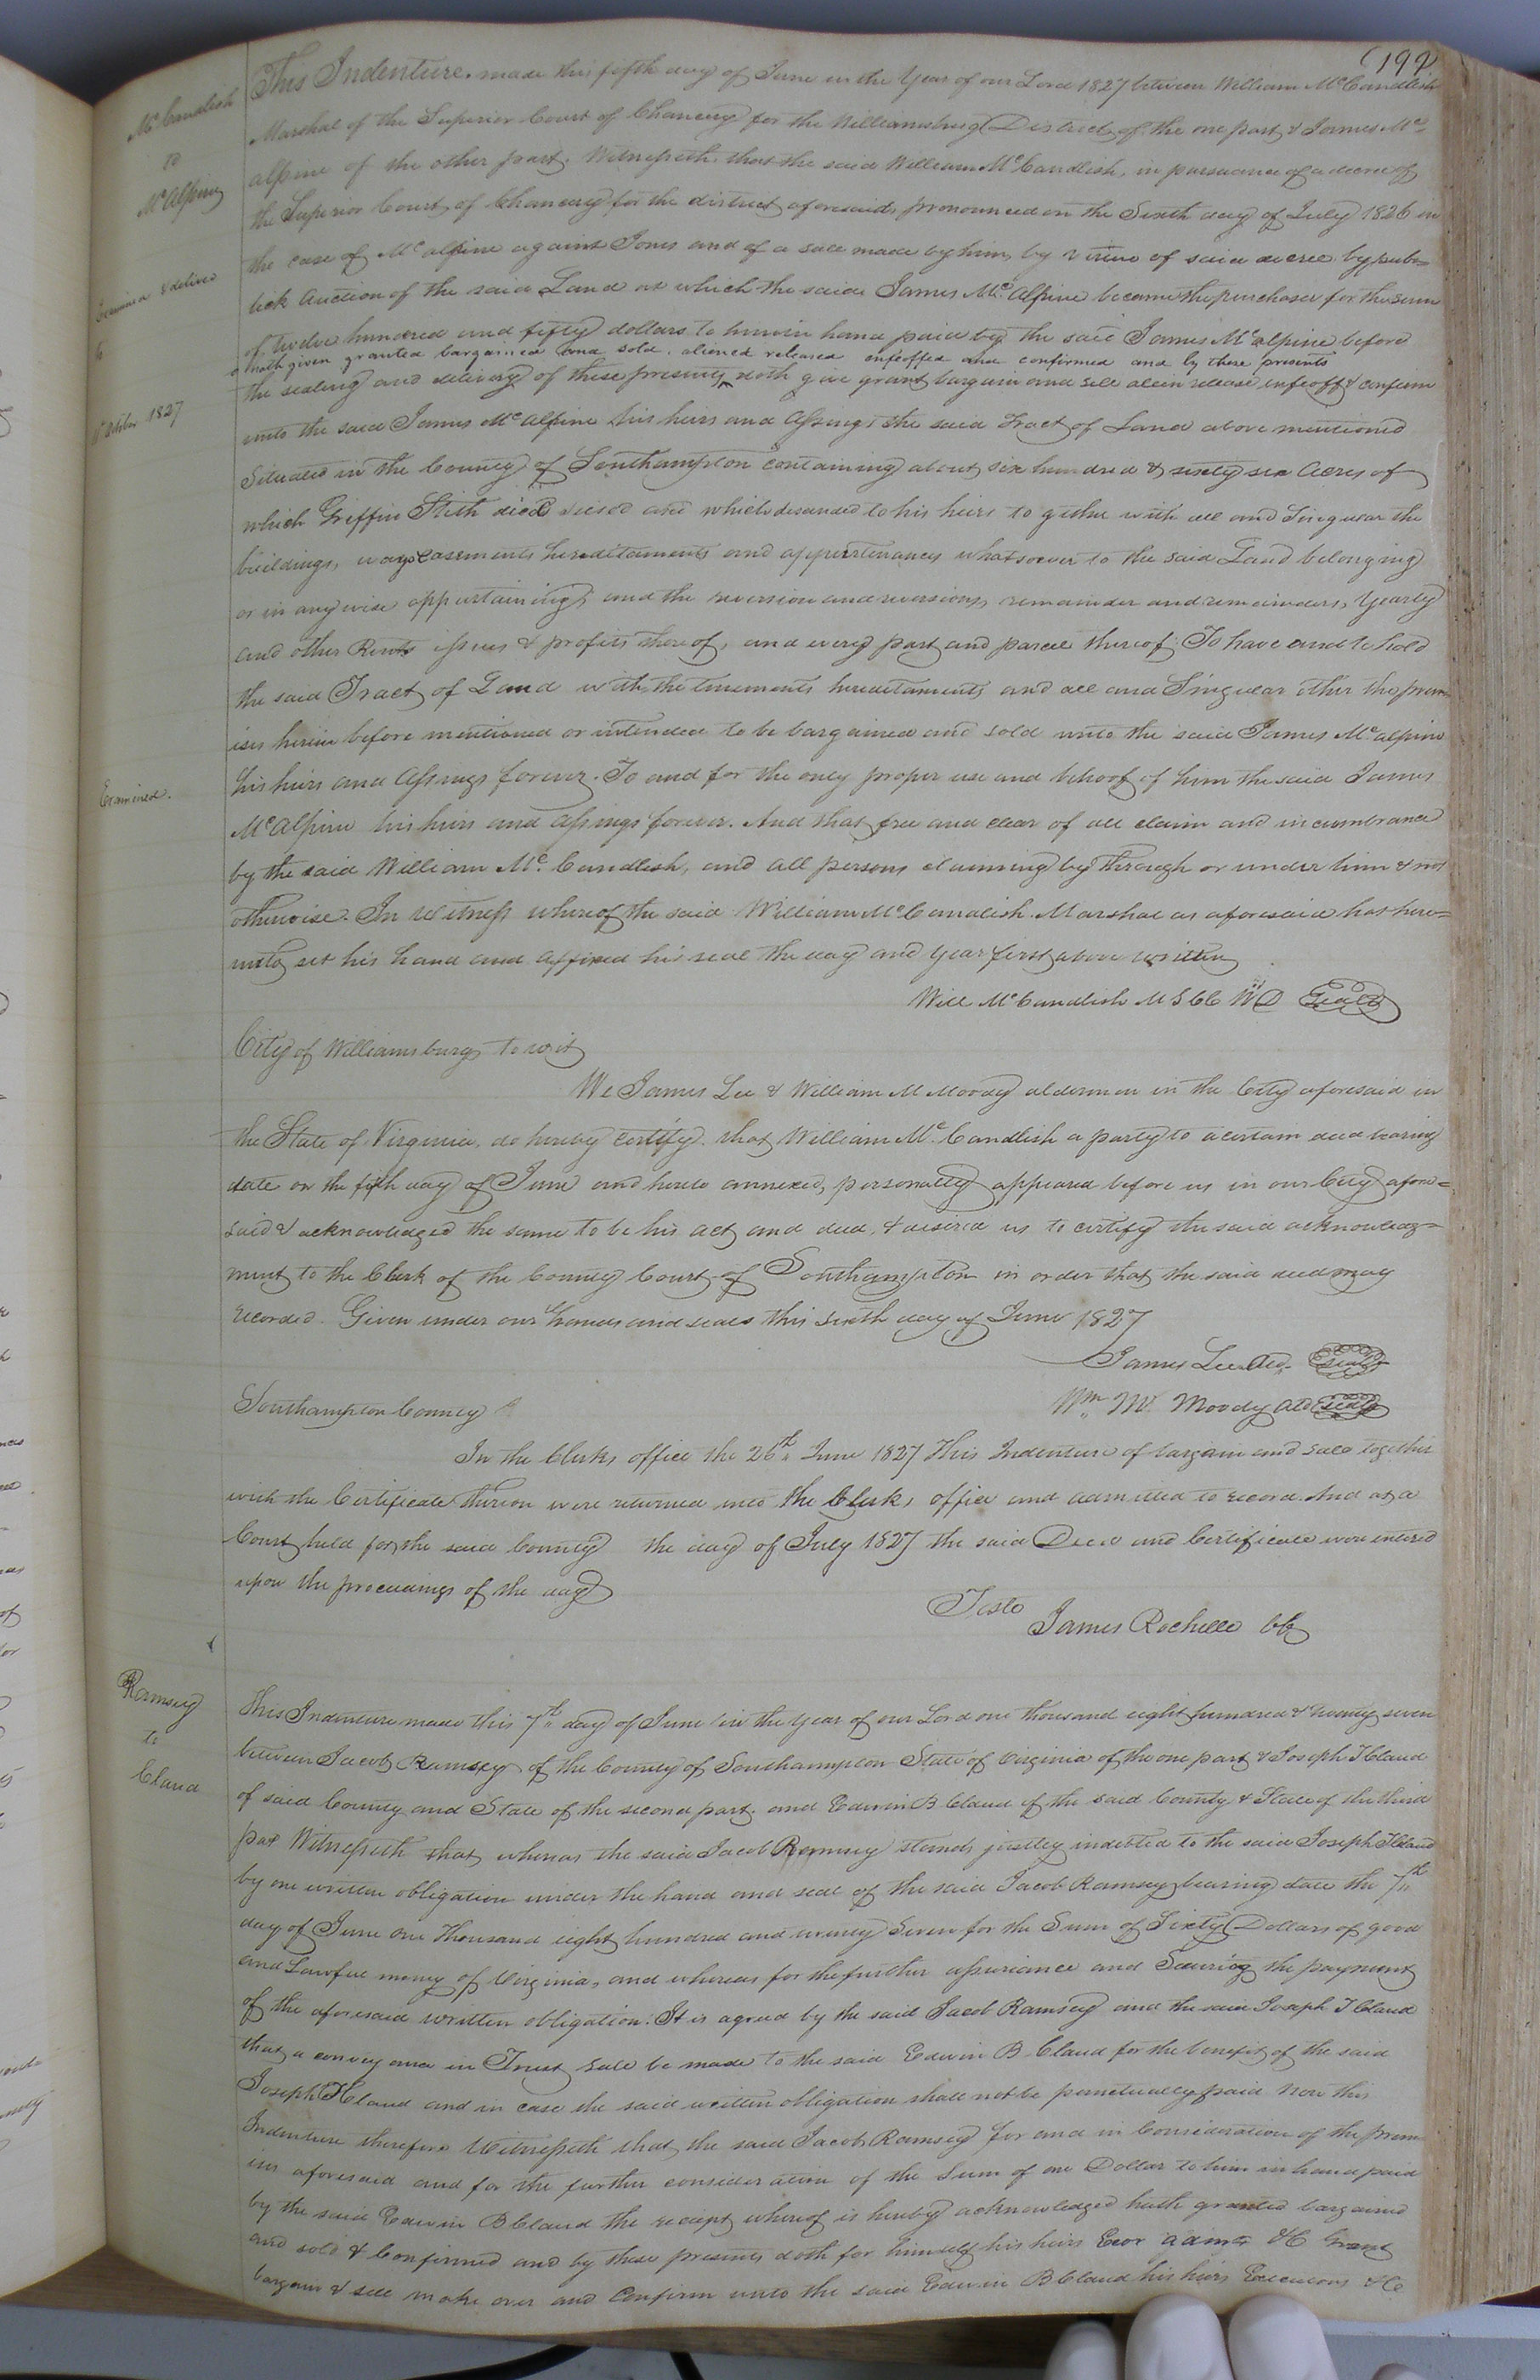 (192
McCandlish
to
McAlpine
Examined & delivd
to
October 1827
This Indenture made this fifth day of June in the Year of our Lord 1827 between William McCandlish
Marshal of the Superior Court of Chancery for the Williamsburg District of the one part & James Mc
alpine of the other part. Witnesseth that the said William McCandlish, in pursuance of a decree of
the Superior Court of Chancery for the district aforesaid, pronounced on the Sixth day of July 1826 in
the case of Mcalpine against Jones and of a sale made by him, by virtue of said decree by pub=
lick auction of the said Land at which the said James McAlpine became the purchaser for the sum
of twelve hundred and fifty dollars to him in hand paid by the said James Mcalpine before
hath given granted bargained and sold, aliened released enfeoffed and confirmed and by these presents
the sealing and delivery of these presents, doth give grant bargain and sell alien release, enfeoff & confirm
unto the said James McAlpine his heirs and Assings the said Tract of Land above mentioned
Situated in the County of Southampton containing about six hundred & sixty six Acres of
which Griffin Stith died siesed and which desended to his heirs to gether with all and Singular the
buildings, ways easements hereditaments and appurtenances whatsoever to the said Land belonging
or in any wise appurtaining, and the reversion and reversions, remainder and remainders, Yearly
and other Rents issues & profits thereof, and every part and parcel thereof. To have and to hold
the said Tract of Land with the tenements hereditaments and all and Singular other the prem
ises herein before mentioned or intended to be bargained and sold unto the said James Mcalpine
his heirs and Assings forever. To and for the only proper use and behoof of him the said James
Examined.
McAlpine his heirs and Assings forever. And that free and clear of all claim and incumbrance
by the said William McCandlish, and all persons claiming by through or under him & not
otherwise. In Witness whereof the said William McCandlish Marshal as aforesaid has here=
unto set his hand and affixed his seal the day and year first above written
Will McCandlish M S C C W D Seal
City of Williamsburg to wit
We James Lee & William M Moody aldermen in the City aforesaid in
the State of Virginia, do hereby certify that William McCandlish a party to a certain deed bearing
date on the fifth day of June and hereto annexed, personally appeared before us in our City afore=
said & acknowledged the same to be his act and deed, & desired us to certify the said acknowledg=
ment to the Clerk of the County Court of Southampton in order that the said deed may
recorded. Given under our hands and seals this Sixth day of June 1827
James Lee Ald. Seal
Wm M Moody Ald Seal
Southampton County
In the Clerks office the 26th June 1827 This Indenture of bargain and sale together
with the Certificate thereon were returned into the Clerks office and admitted to record. And at a
Court held for the said County the day of July 1827 the said Deed and Certificate were entered
upon the proceedings of the day
Teste
James Rochelle CC
Ramsey
to
Claud
This Indenture made this 7th day of June in the year of our Lord one thousand eight hundred & twenty seven
between Jacob Ramsey of the County of Southampton State of Virginia of the one part & Joseph T Claud
of said County and State of the second part, and Edwin B Claud of the said County & State of the third
part Witnesseth that whereas the said Jacob Ramsey stands justley indebted to the said Joseph T Claud
by one written obligation under the hand and seal of the said Jacob Ramsey bearing date the 7th
day of June One Thousand eight hundred and twenty Seven for the Sum of Sixty Dollars of good
and Lawfull money of Virginia, and whereas for the further assurance and Securing the payment
of the aforesaid written obligation. It is agreed by the said Jacob Ramsey and the said Joseph T Claud
that a conveyance in Trust sall be made to the said Edwin B. Claud for the benefit of the said
Joseph T Claud and in case the said written obligation shall not be punctually paid Now this
Indenture therefore Witnesseth that the said Jacob Ramsey for and in Consideration of the prem
ises aforesaid and for the further consideration of the Sum of one Dollar to him in hand paid
by the said Edwin B Claud the recept whereof is hereby acknowledged hath granted bargained
and sold & Confirmed and by these presents doth for himself his heirs Exor admr &C Grant
bargain & sell make over and Confirm unto the said Edwin B Claud his heirs Executors &C